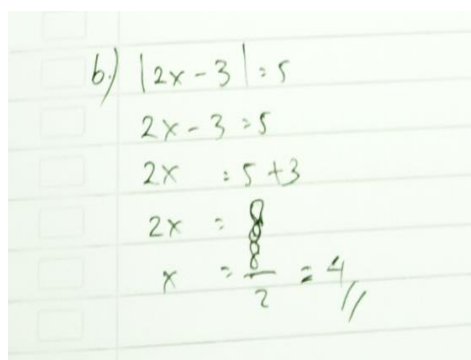 b.) |2x - 3| = 5
2x - 3 = 5
2x = 5 + 3
2x = 8
x = 8/2 = 4 //